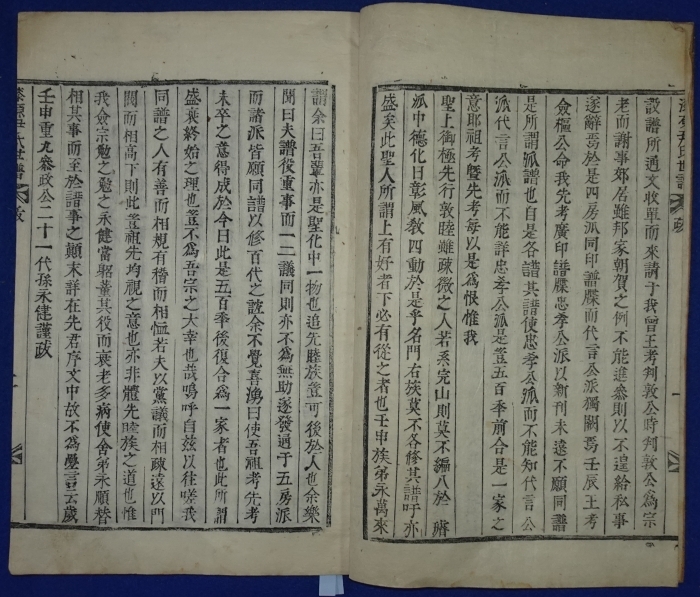 設譜所通文收單而來請于我曾王考判敦公時判敦公爲宗
老而謝事郊居雖邦家朝賀之例不能進參則以不遑給私事
遂辭焉於是四房派同印譜牒而代言公派獨闕焉壬辰王考
僉樞公命我先考廣印譜牒忠孝公派以新刊未遠不願同譜
是所謂派譜也自是各譜其譜使忠孝公派而不能知代言公
派代言公派而不能詳忠孝公派是豈五百年前合是一家之
意耶祖考曁先考每以是爲恨惟我
聖上御極先行敦睦雖疎微之人若系完山則莫不編入於 璿
派中德化日彰風敎四動於是乎名門右族莫不各修其譜吁亦
盛矣此聖人所謂上有好者下必有從之者也壬申族弟永萬來
謂余曰吾輩亦是聖化中一物也追先睦族豈可後於人也余樂
聞曰夫譜役重事而一二議同則亦不爲無助遂發通于五房派
而諸派皆願同譜以修百代之誼余不覺喜湧曰使吾祖考先考
未卒之意得成於今日此是五百年後復合爲一家者也此所謂
盛衰終始之理也豈不爲吾宗之大幸也哉嗚呼自玆以往嗟我
同譜之人有善而相規有稽而相恤若夫以黨議而相疎遂以門
閥而相高下則此豈祖先均視之意也亦非體先睦族之道也惟
我僉宗勉之勉之永健當躬董其役而衰老多病使舍弟永願替
相其事而至於譜事之顚末詳在先君序文中故不爲疊言云歲
壬申重九參政公二十一代孫永健謹跋